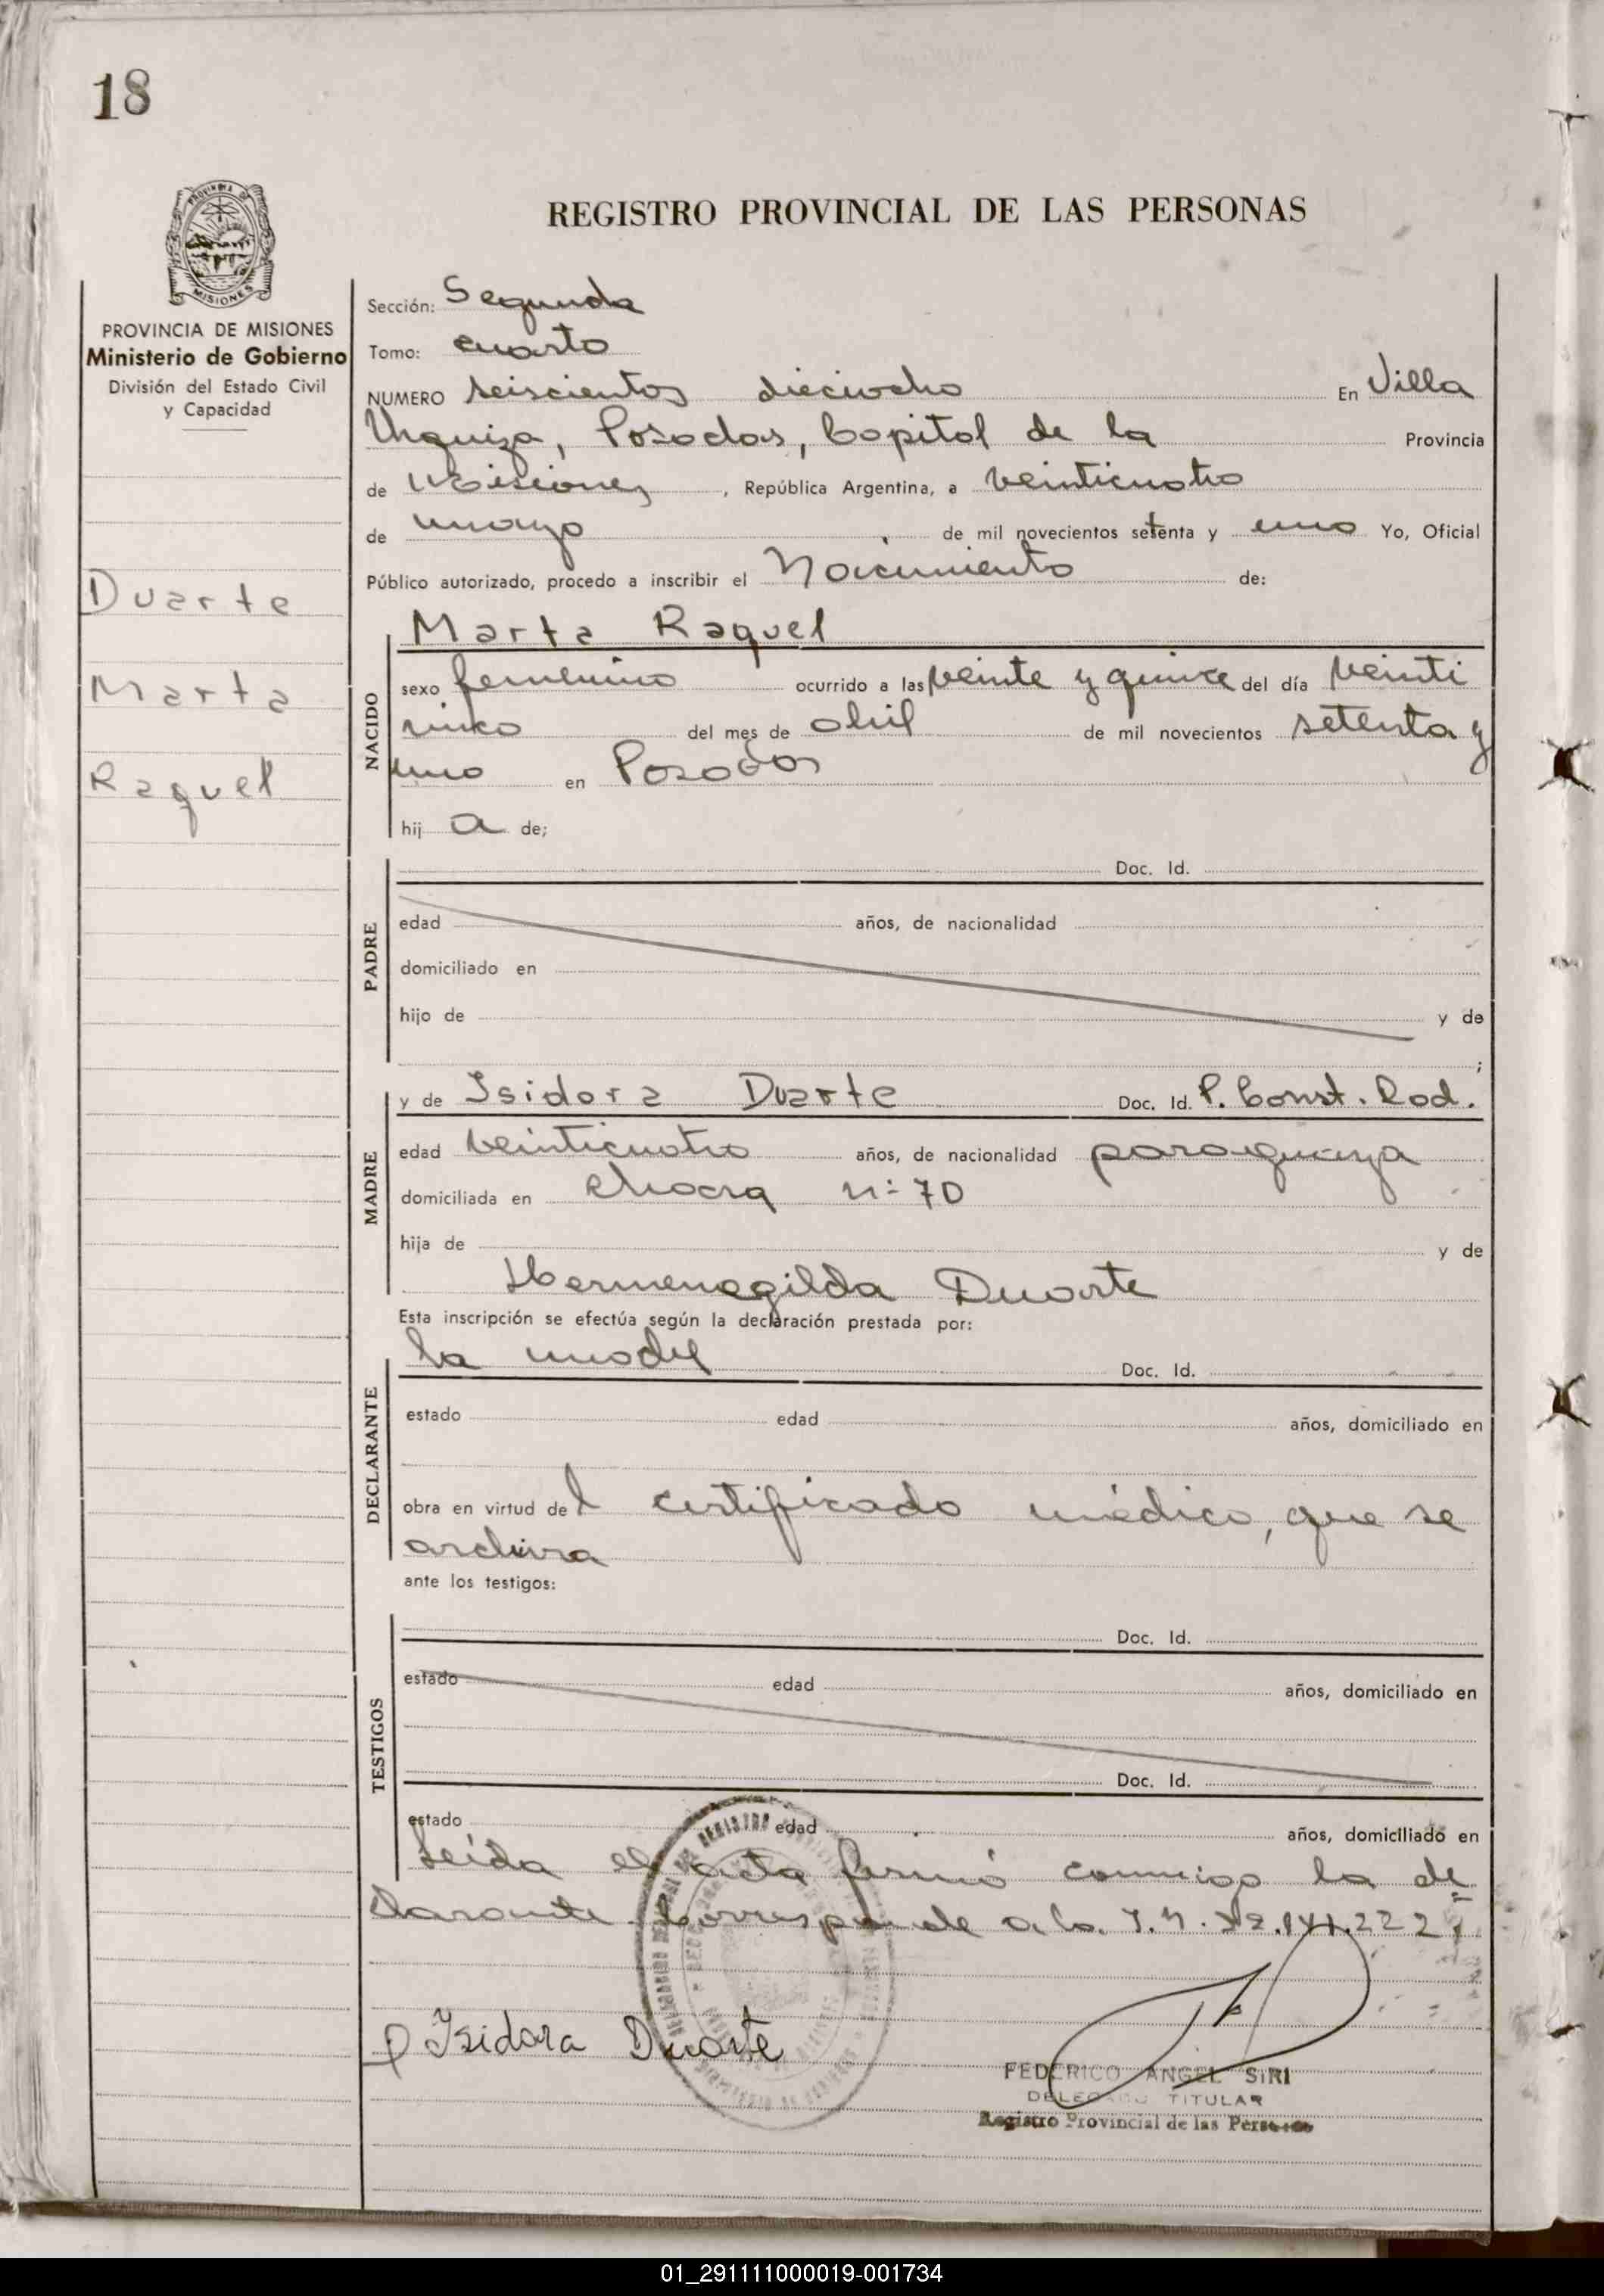 18
REGISTRO PROVINCIAL DE LAS PERSONAS
PROVINCIA DE MISIONES
MISIONES
PROVINCIA DE MISIONES
Ministerio de Gobierno
División del Estado Civil
y Capacidad
Duarte
Marta
Raquel
Sección: Segunda
Tomo: cuarto
NUMERO seiscientos dieciocho En Villa
Urquiza, Posadas, Capital de la Provincia
de Misiones, República Argentina, a veinticuatro
de mayo de mil novecientos setenta y uno Yo, Oficial
Público autorizado, procedo a inscribir el Nacimiento de:
NACIDO
Marta Raquel
sexo femenino ocurrido a las veinte y quince del día veinti
cinco del mes de abril de mil novecientos setenta y
uno en Posadas
hij a de;
PADRE
Doc. Id.
edad años, de nacionalidad
domiciliado en
hijo de y de
;
MADRE
y de Isidora Duarte Doc. Id. P. Const. Rad.
edad veinticuatro años, de nacionalidad paraguaya
domiciliada en chacra nº 70
hija de y de
Hermenegilda Duarte
Esta inscripción se efectúa según la declaración prestada por:
DECLARANTE
la madre Doc. Id.
estado edad años, domiciliado en
obra en virtud del certificado médico, que se
archiva
ante los testigos:
TESTIGOS
Doc. Id.
estado edad años, domiciliado en
Doc. Id.
estado edad años, domiciliado en
Leída el acta firmó conmigo la de
clarante. Corresponde a la
Isidora Duarte
FEDERICO ANGEL SIRI
DELEGADO TITULAR
Registro Provincial de las Personas
01_291111000019-001734